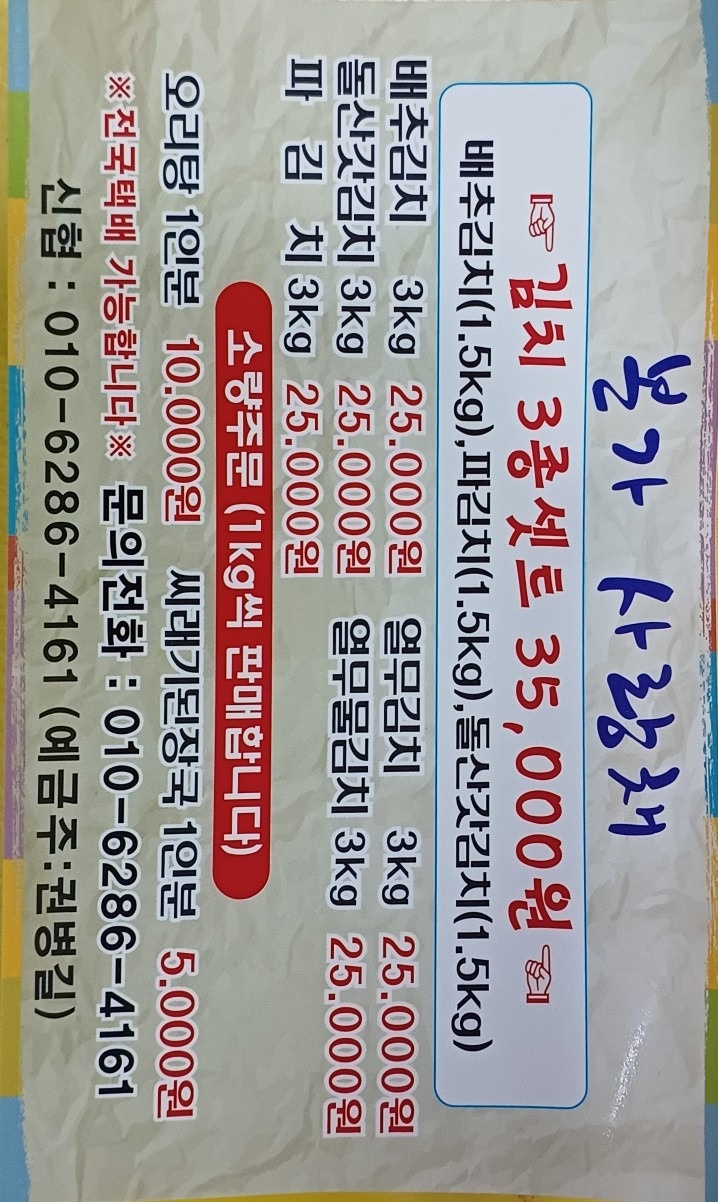 본가 사랑채
☞김치 3종셋트 35,000원☜
배추김치(1.5kg),파김치(1.5kg),돌산갓김치(1.5kg)
배추김치 3kg 25.000원 열무김치 3kg 25.000원
돌산갓김치 3kg 25.000원 열무물김치 3kg 25.000원
파 김 치 3kg 25.000원
소량주문 (1kg씩 판매합니다)
오리탕 1인분 10.000원 씨래기된장국 1인분 5.000원
※전국택배 가능합니다※ 문의전화 : 010-6286-4161
신협 : 010-6286-4161 (예금주:권병길)